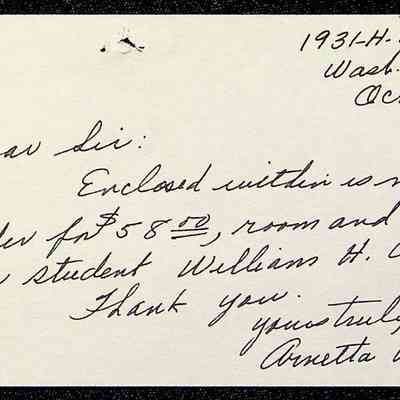 1931-H.
Wash.
Oc
ear Sir:
Enclosed within is m
der for $58.00, room and
student Williams H.
Thank you.
yours truly
Arnetta